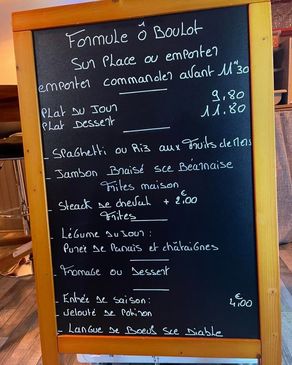 Formule Ô Boulot
Sur Place ou emporter
emporter commander avant 11h30
Plat du Jour 9,80
Plat Dessert 11.80
- Spaghetti ou Riz aux Fruits de Mers
- Jambon Braisé sce Béarnaise
Frites maison
- Steack de cheval + 2€,00
Frites
- Légume du Jour :
Purée de Panais et châtaignes
- Fromage ou Dessert
- Entrée de saison : 4€,00
Velouté de Potiron
- Langue de Boeuf Sce Diable